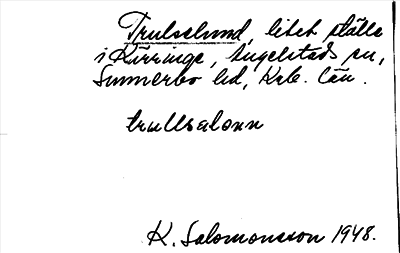 Trulsalund, litet ställe
i Kärringe, Angelstads sn,
Sunnerbo hd, Krb. län.
trullsalonn
K. Salomonsson 1948.